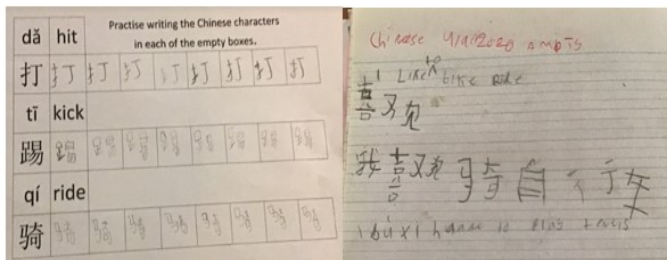 dǎ hit
Practise writing the Chinese characters
in each of the empty boxes.
打 打 打 打 打 打 打 打 打
tī kick
踢 踢 踢 踢 踢 踢 踢 踢 踢
qí ride
骑 骑 骑 骑 骑 骑 骑 骑 骑
Chinese
I Like to bike ride
喜欢
我喜欢骑自行车
to